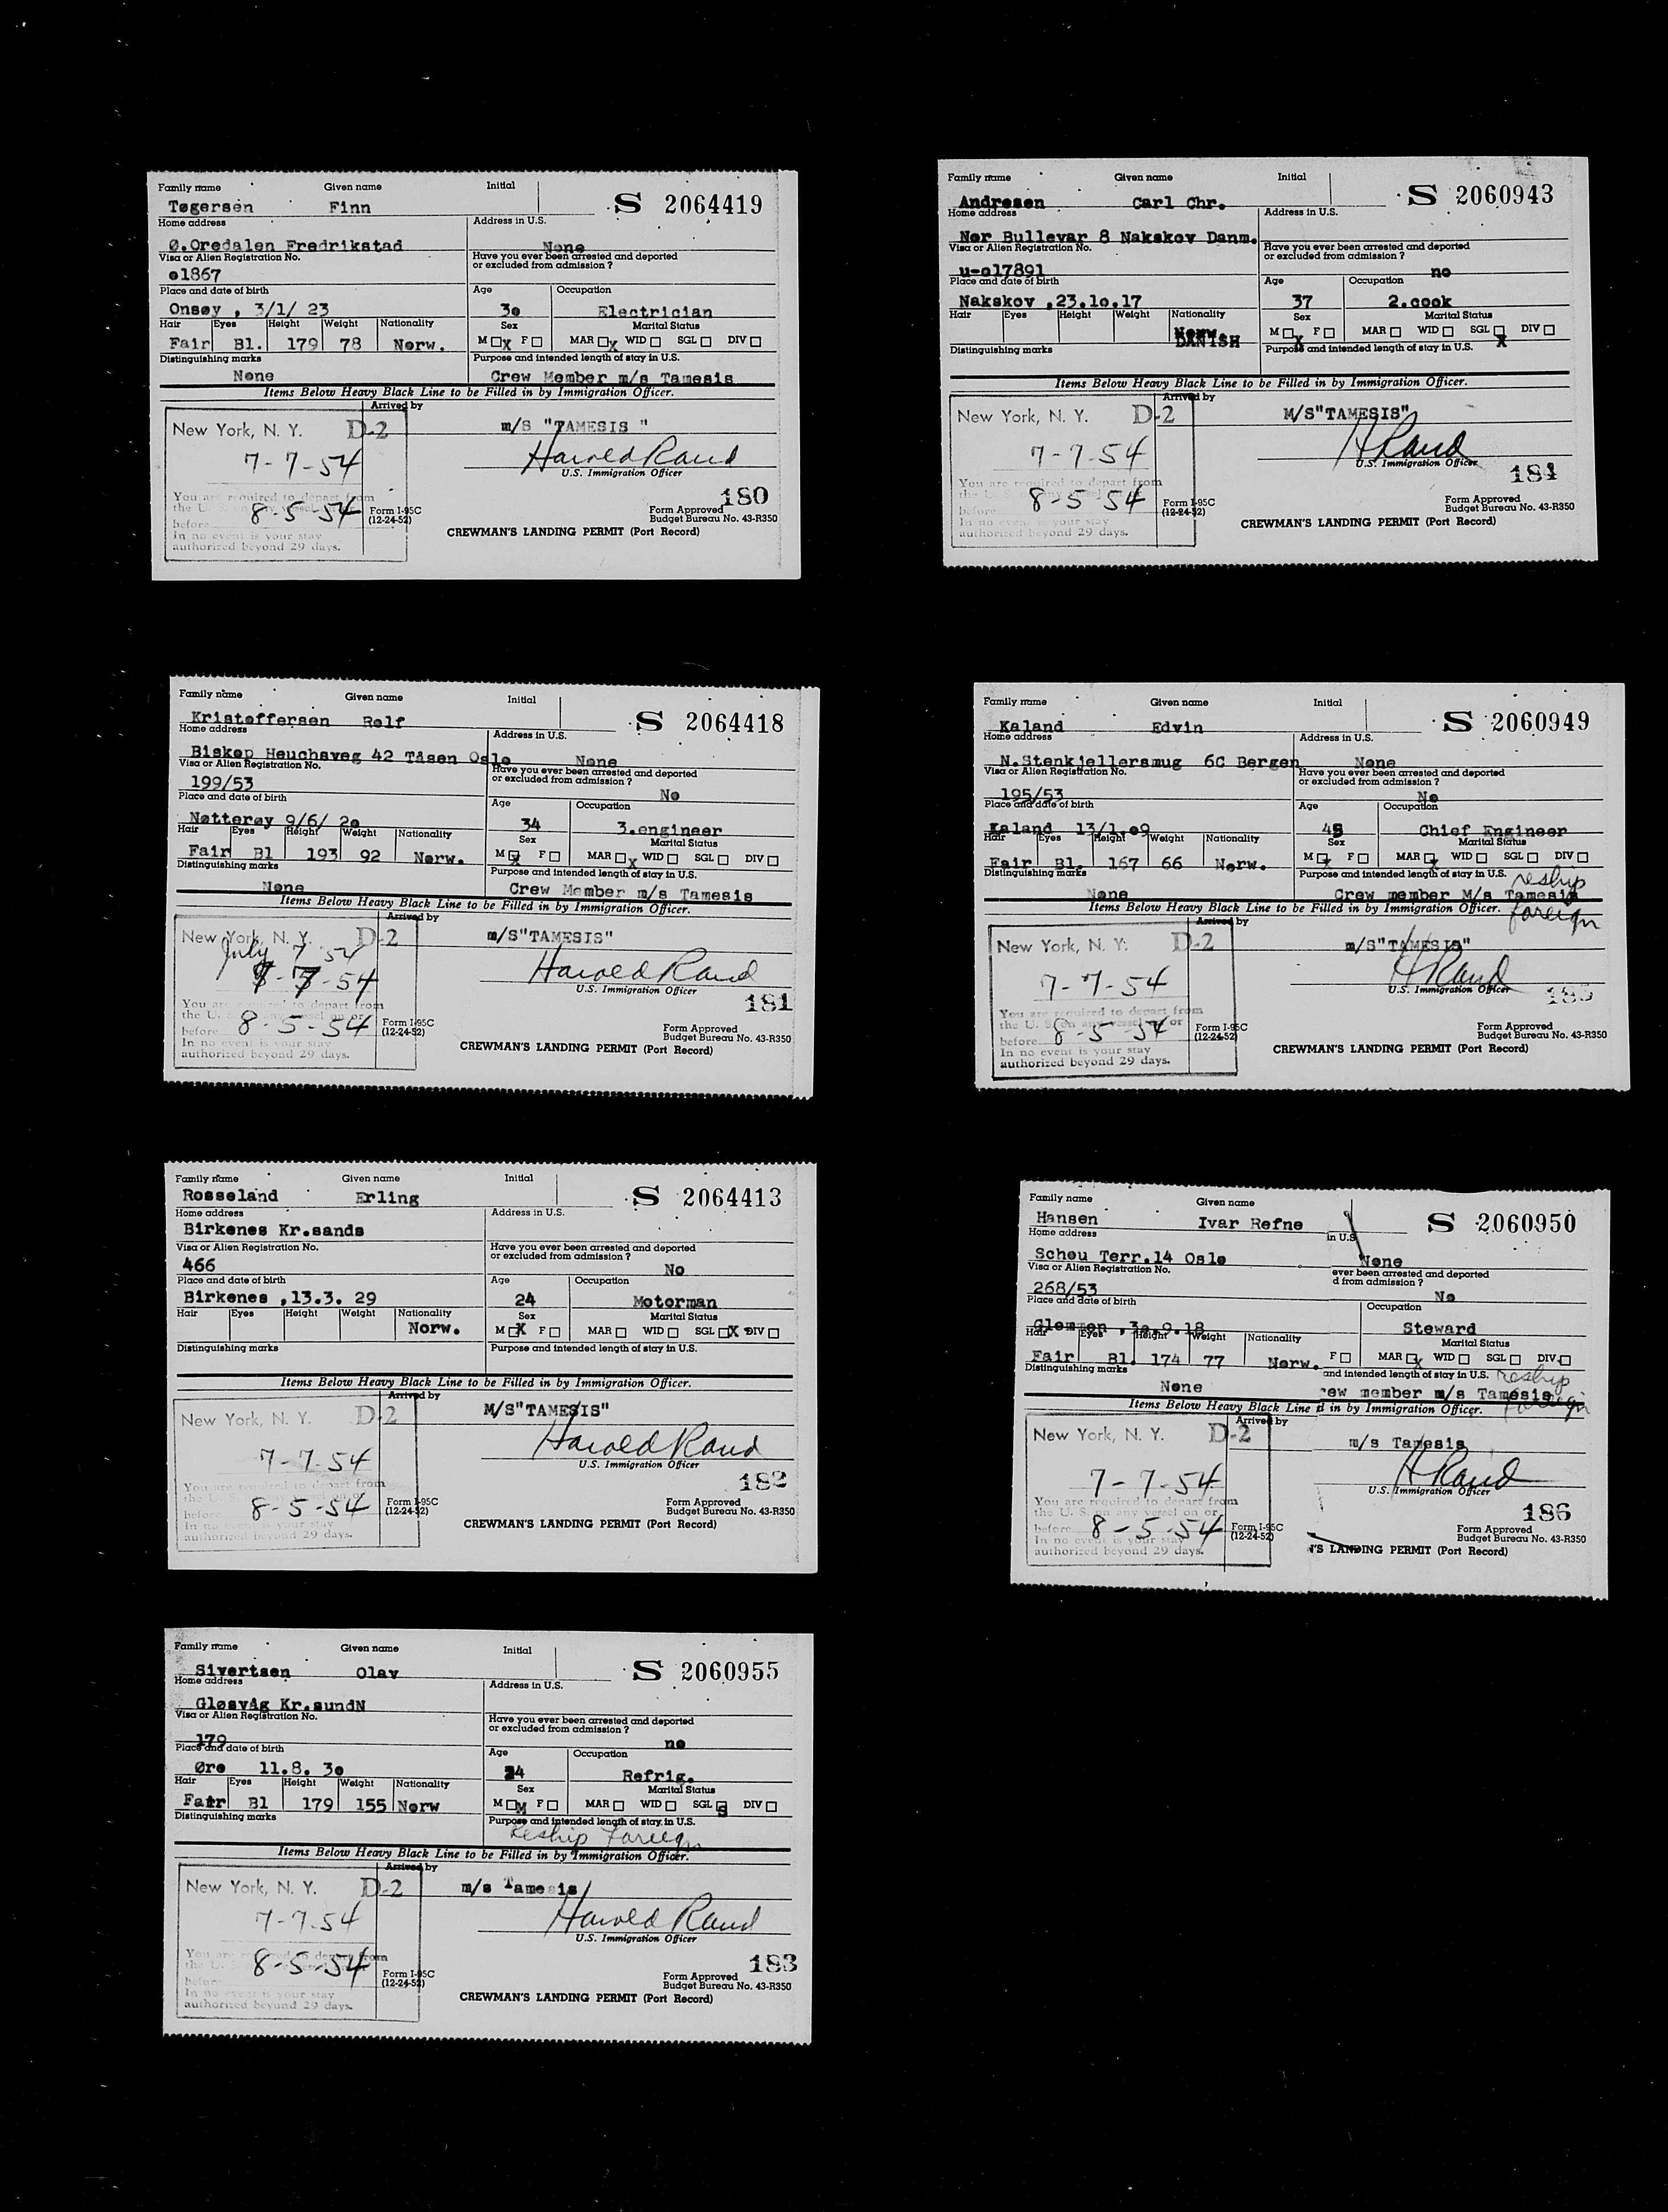 Family name Given name Initial
S 2064419
Tøgersen Finn
Home address Address in U.S.
Ø.Oredalen Fredrikstad None
Visa or Alien Registration No. Have you ever been arrested and deported
or excluded from admission ?
o1867
Place and date of birth Age Occupation
Onsøy , 3/1/ 23 3o Electrician
Hair Eyes Height Weight Nationality Sex Marital Status
Fair Bl. 179 78 Norw. M X F MAR X WID SGL DIV
Distinguishing marks Purpose and intended length of stay in U.S.
None Crew Member m/s Tamesis
Items Below Heavy Black Line to be Filled in by Immigration Officer.
Arrived by
New York, N. Y. D-2 m/S "TAMESIS "
7-7-54 Harold Rand
U.S. Immigration Officer
You are required to depart from 180
the U.
8-5-54 Form I-95C Form Approved
before (12-24-52) Budget Bureau No. 43-R350
In no event is your stay CREWMAN'S LANDING PERMIT (Port Record)
authorized beyond 29 days.
Family name Given name Initial
S 2060943
Andresen Carl Chr.
Home address Address in U.S.
Nor Bullevar 8 Nakskov Danm.
Visa or Alien Registration No. Have you ever been arrested and deported
or excluded from admission ?
u-o17891 no
Place and date of birth Age Occupation
Nakskov ,23.1o.17 37 2.cook
Hair Eyes Height Weight Nationality Sex Marital Status
Norw. M X F MAR WID SGL X DIV
DANISH
Distinguishing marks Purpose and intended length of stay in U.S.
Items Below Heavy Black Line to be Filled in by Immigration Officer.
Arrived by
New York, N. Y. D-2 M/S"TAMESIS"
7-7-54 H Rand
U.S. Immigration Officer
You are required to depart from 184
the U.
8-5-54 Form I-95C Form Approved
before (12-24-52) Budget Bureau No. 43-R350
In no event is your stay CREWMAN'S LANDING PERMIT (Port Record)
authorized beyond 29 days.
Family name Given name Initial
S 2064418
Kristoffersen Rolf
Home address Address in U.S.
Biskop Heuchsveg 42 Tåsen Oslo None
Visa or Alien Registration No. Have you ever been arrested and deported
or excluded from admission ?
199/53 No
Place and date of birth Age Occupation
Nøtterøy 9/6/ 2o 34 3.engineer
Hair Eyes Height Weight Nationality Sex Marital Status
Fair Bl 193 92 Norw. M X F MAR X WID SGL DIV
Distinguishing marks Purpose and intended length of stay in U.S.
None Crew Member m/s Tamesis
Items Below Heavy Black Line to be Filled in by Immigration Officer.
Arrived by
New York, N. Y. D-2 m/S"TAMESIS"
July 7 54
7-7-54 Harold Rand
U.S. Immigration Officer
You are required to depart from 181
the U. S. on any vessel on or
before 8-5-54 Form I-95C Form Approved
(12-24-52) Budget Bureau No. 43-R350
In no event is your stay CREWMAN'S LANDING PERMIT (Port Record)
authorized beyond 29 days.
Family name Given name Initial
S 2060949
Kaland Edvin
Home address Address in U.S.
N.Stenkjellersmug 6C Bergen None
Visa or Alien Registration No. Have you ever been arrested and deported
or excluded from admission ?
195/53 No
Place and date of birth Age Occupation
Kaland 13/1.o9 45 Chief Engineer
Hair Eyes Height Weight Nationality Sex Marital Status
Fair Bl. 167 66 Norw. M X F MAR X WID SGL DIV
Distinguishing marks Purpose and intended length of stay in U.S. reship
None Crew member M/s Tamesis
Items Below Heavy Black Line to be Filled in by Immigration Officer. foreign
Arrived by
New York, N. Y. D-2 m/S"TAMESIS"
7-7-54 H Rand
U.S. Immigration Officer
You are required to depart from 185
the U. S. on any vessel on or
before 8-5-54 Form I-95C Form Approved
(12-24-52) Budget Bureau No. 43-R350
In no event is your stay CREWMAN'S LANDING PERMIT (Port Record)
authorized beyond 29 days.
Family name Given name Initial
S 2064413
Rosseland Erling
Home address Address in U.S.
Birkenes Kr.sands
Visa or Alien Registration No. Have you ever been arrested and deported
or excluded from admission ?
466 No
Place and date of birth Age Occupation
Birkenes ,13.3. 29 24 Motorman
Hair Eyes Height Weight Nationality Sex Marital Status
Norw. M X F MAR WID SGL X DIV
Distinguishing marks Purpose and intended length of stay in U.S.
Items Below Heavy Black Line to be Filled in by Immigration Officer.
Arrived by
New York, N. Y. D-2 M/S"TAMESIS"
7-7-54 Harold Rand
U.S. Immigration Officer
You are required to depart from 182
the U.
8-5-54 Form I-95C Form Approved
before (12-24-52) Budget Bureau No. 43-R350
In no event is your stay CREWMAN'S LANDING PERMIT (Port Record)
authorized beyond 29 days.
Family name Given name
S 2060950
Hansen Ivar Refne
Home address in U.S
Schou Terr.14 Oslo None
Visa or Alien Registration No. ever been arrested and deported
d from admission ?
268/53 No
Place and date of birth Occupation
Glemmen ,3o.9.18 Steward
Hair Eyes Height Weight Nationality Marital Status
Fair Bl. 174 77 Norw. F MAR X WID SGL DIV
Distinguishing marks and intended length of stay in U.S. reship
None rew member m/s Tamesis
Items Below Heavy Black Line d in by Immigration Officer. foreign
Arrived by
New York, N. Y. D-2 m/s Tamesis
7-7-54 H Rand
U.S. Immigration Officer
You are required to depart from 186
the U. S. on any vessel on or
before 8-5-54 Form I-95C Form Approved
(12-24-52) Budget Bureau No. 43-R350
In no event is your stay 'S LANDING PERMIT (Port Record)
authorized beyond 29 days.
Family name Given name Initial
S 2060955
Sivertsen Olav
Home address Address in U.S.
Gløsvåg Kr.sundN
Visa or Alien Registration No. Have you ever been arrested and deported
or excluded from admission ?
179 no
Place and date of birth Age Occupation
Øre 11.8. 3o 24 Refrig.
Hair Eyes Height Weight Nationality Sex Marital Status
Fair Bl 179 155 Norw M M F MAR WID SGL S DIV
Distinguishing marks Purpose and intended length of stay in U.S.
Reship Foreign
Items Below Heavy Black Line to be Filled in by Immigration Officer.
Arrived by
New York, N. Y. D-2 m/s Tamesis
7-7-54 Harold Rand
U.S. Immigration Officer
You are required to depart from 183
the U.
8-5-54 Form I-95C Form Approved
before (12-24-52) Budget Bureau No. 43-R350
In no event is your stay CREWMAN'S LANDING PERMIT (Port Record)
authorized beyond 29 days.